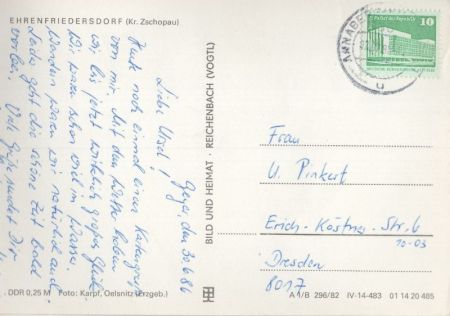 EHRENFRIEDERSDORF (Kr. Zschopau)
Geyer, den 30.6.86
Liebe Ursel!
Heute noch einmal einen Kartengruß
von mir. Mit dem Wetter haben
wir bis jetzt wirklich großes Glück.
Wir waren schon viel im Wasser.
Wandern waren wir natürlich auch.
Leider geht die schöne Zeit bald
vorbei.
Viele Grüße sendet Dir
DDR 0,25 M Foto: Karpf, Oelsnitz (Erzgeb.)
BILD UND HEIMAT · REICHENBACH (VOGTL)
Palast der Republik
10
ANNABE
u
Frau
U. Pinkert
Erich-Kästner-Str. 6
10-03
Dresden
8017
A 1/B 296/82 IV-14-483 01 14 20 485